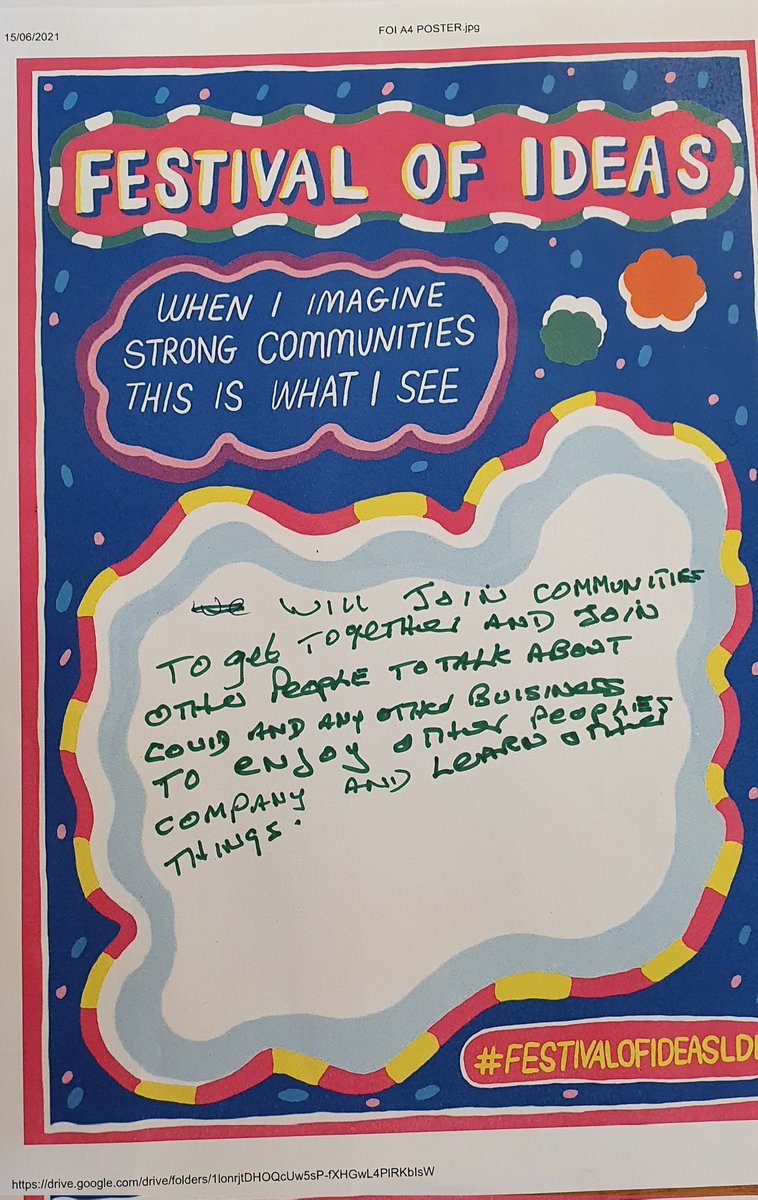 15/06/2021
FOI A4 POSTER.jpg
FESTIVAL OF IDEAS
WHEN I IMAGINE
STRONG COMMUNITIES
THIS IS WHAT I SEE
WILL JOIN COMMUNITIES
TO get TOgetHer AND JOIN
OTHer PeOPLE TO TALK ABOUT
COVID AND ANY OTHER BUISINESS
TO enJoy OTHer PeOPLES
COMPANY AND LEARN OTHer
THINGS.
#FESTIVALOFIDEASLD
https://drive.google.com/drive/folders/1IonrjtDHOQcUw5sP-fXHGwL4PlRKbIsW